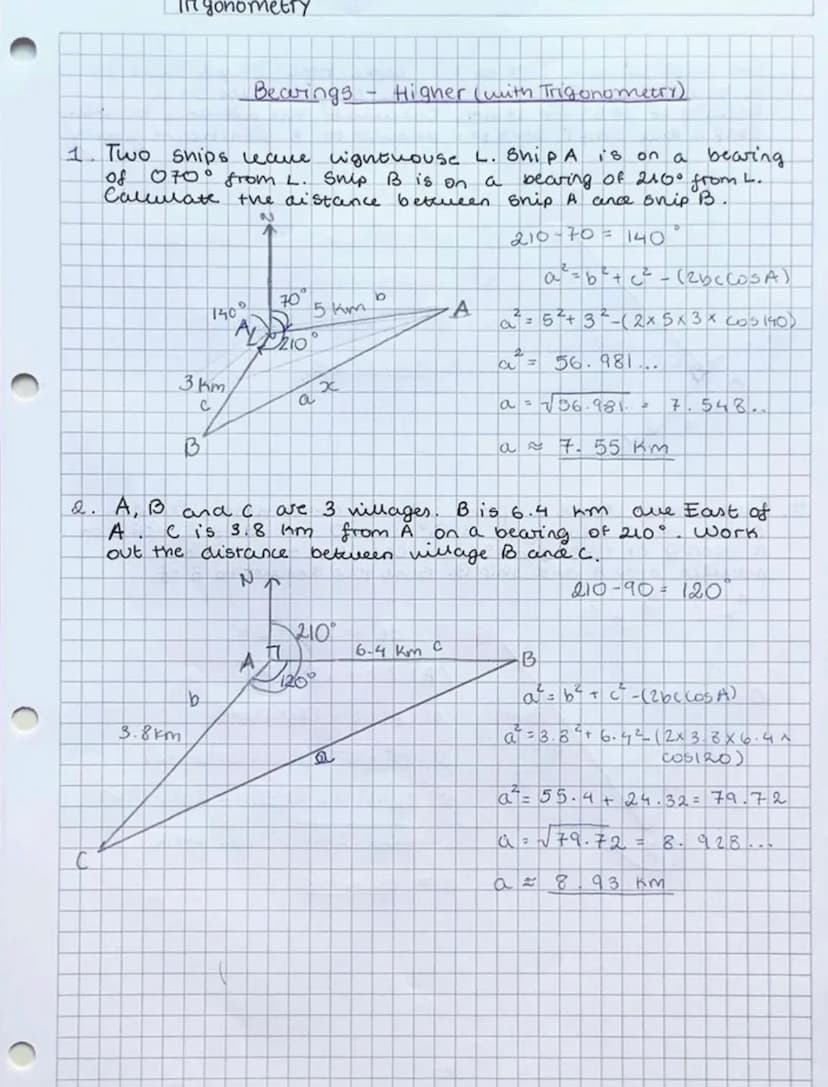 Trigonometry
Bearings - Higher (with Trigonometry)
1. Two ships leave lighthouse L. Ship A is on a bearing
of 070° from L. Ship B is on a bearing of 210° from L.
Calculate the distance between ship A and ship B.
N
210-70 = 140°
a² = b² + c² - (2bccosA)
140°
70°
5 km b
A
A
L
210°
a² = 5² + 3² - (2 x 5 x 3 x cos140)
a² = 56.981...
3 km
c
a
x
a = √56.981.. = 7.548..
B
a ≈ 7.55 km
2. A, B and C are 3 villages. B is 6.4 km due East of
A. C is 3.8 km from A on a bearing of 210°. Work
out the distance between village B and C.
N
210-90 = 120°
210°
6.4 km c
A
B
120°
b
a² = b² + c² - (2bccosA)
3.8km
a² = 3.8² + 6.4² - (2x 3.8 x 6.4 x
cos120)
a
a² = 55.4 + 24.32 = 79.72
a = √79.72 = 8.928...
C
a ≈ 8.93 km